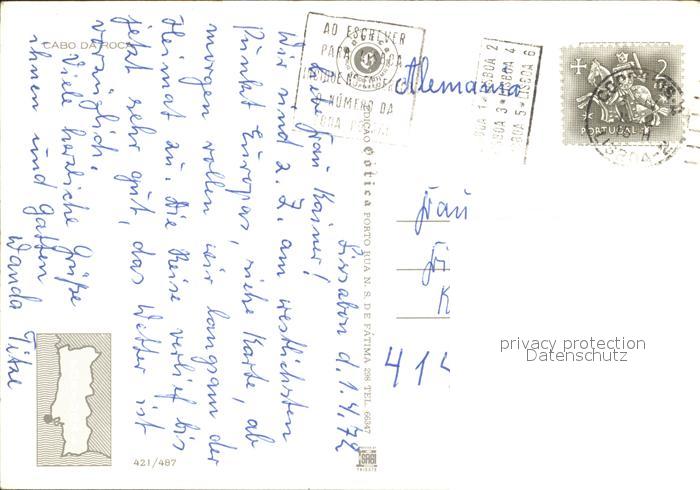 CABO DA ROCA
Lissabon d. 1.4.72
Liebe Frau Kainer!
Wir sind z. Z. am westlichsten
Punkt Europas, siehe Karte, ab
morgen wollen wir langsam der
Heimat zu. Die Reise verlief bis
jetzt sehr gut, das Wetter ist
vorzüglich.
Viele herzliche Grüße
ihnen und Gatten
Wanda Titze
421/487
EDIÇÃO Gótica PORTO RUA N. S. DE FÁTIMA 298 TEL. 66347
AO ESCREVER
PARA
NÚMERO DA
LISBOA 2
LISBOA 4
LISBOA 6
1
LISBOA 3
LISBOA 5
2
PORTUGAL
LISBOA-2
Alemanha
Frau
K
414
privacy protection
Datenschutz